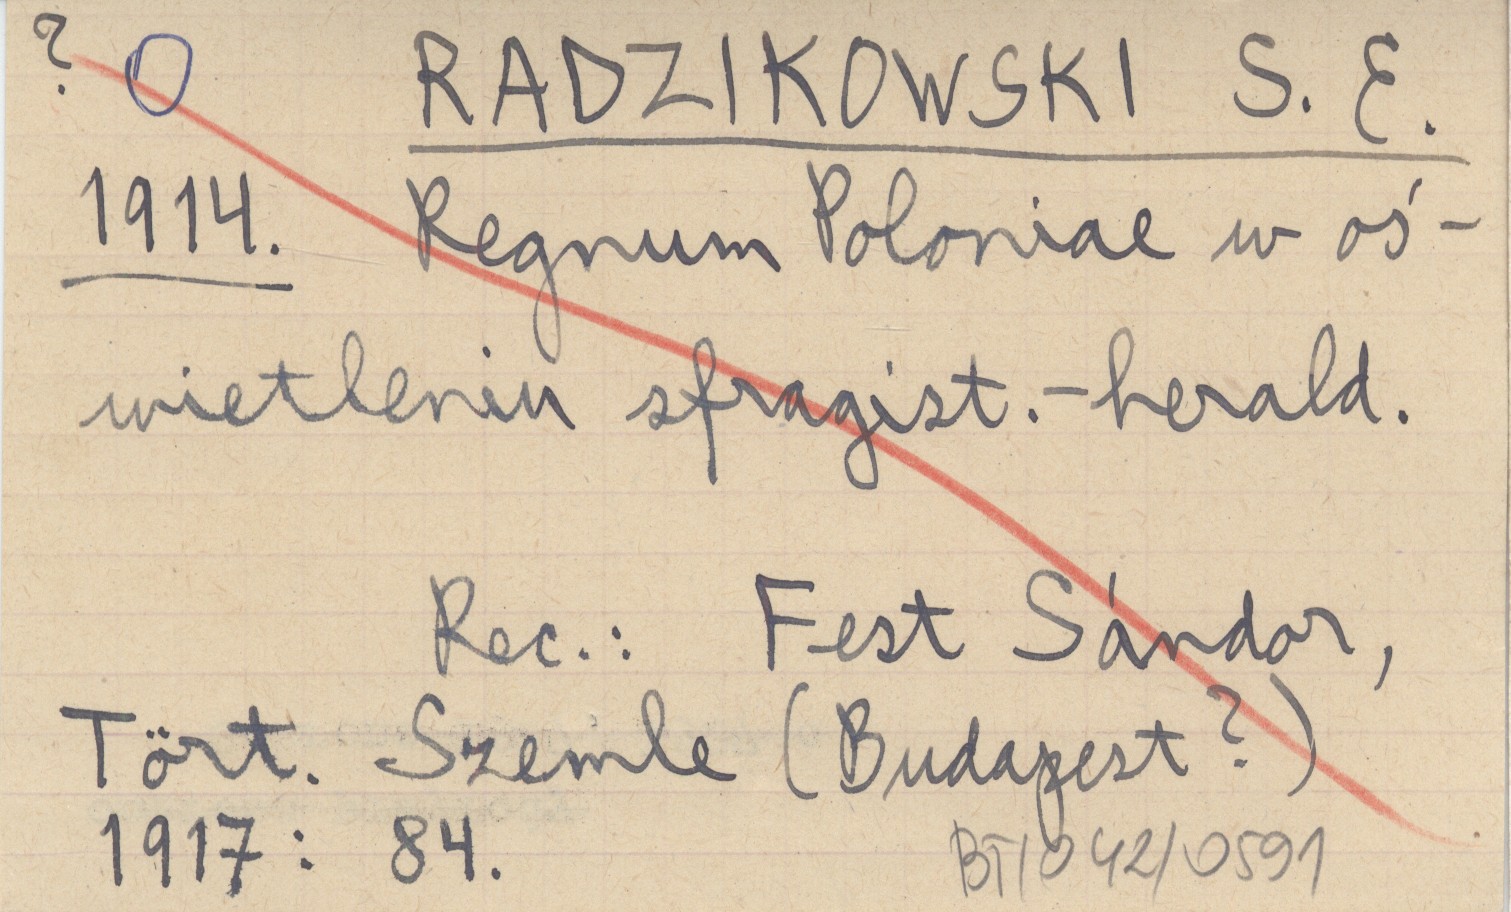 ? O RADZIKOWSKI S. E.
1914. Regnum Poloniae w oś-
wietleniu sfragist.-herald.
Rec.: Fest Sándor,
Tört. Szemle (Budapest?)
1917: 84.
BT/042/0591